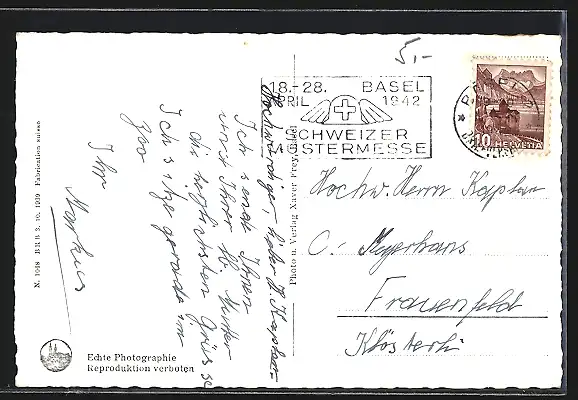 5,-
18.-28. BASEL
APRIL 1942
SCHWEIZER
MUSTERMESSE
10 HELVETIA
Hochwürdiger, lieber H. Kaplan
Ich sende Ihnen
und Ihrer lb. Mutter
die herzlichsten Grüsse
Ich sitze gerade im
Zoo
Ihr
Markus
Hochw. Herrn Kaplan
O. Meyerhans
Frauenfeld
Klösterli
Photo u. Verlag Xaver Frey, Basel
N. 1048 BRB 3. 10. 1939 Fabrication suisse
Echte Photographie
Reproduktion verboten